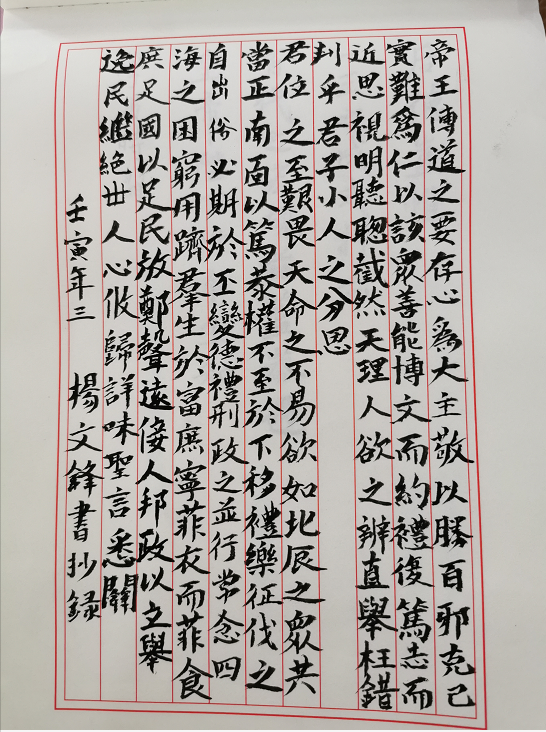 帝王傳道之要存心為大主敬以勝百邪克己
實難為仁以該眾善能博文而約禮復篤志而
近思視明聽聰截然天理人欲之辨直舉枉錯
判乎君子小人之分思
君位之至艱畏天命之不易欲如北辰之眾共
當正南面以篤恭權不至於下移禮樂征伐之
自出俗必期於丕變德禮刑政之並行常念四
海之困窮用躋羣生於富庶寧菲衣而菲食
庶足國以足民放鄭聲遠佞人邦政以立舉
逸民繼絕世人心攸歸詳味聖言悉關
壬寅年三 楊文鋒書抄録